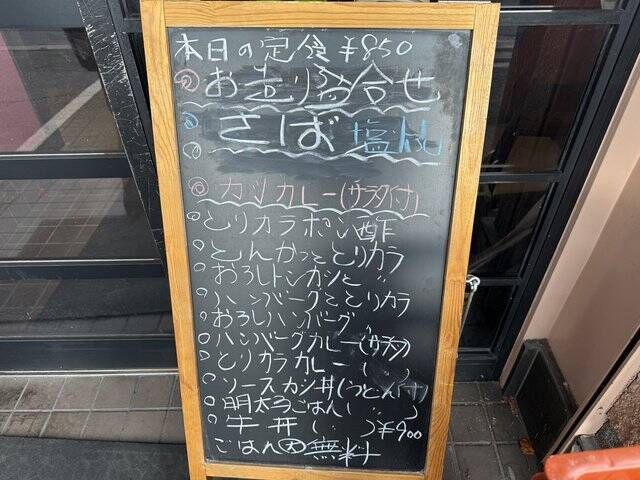 本日の定食￥850
◎お造り盛合せ
○さば塩焼
○
◎カツカレー(サラダ付)
○とりカラポン酢
○とんかつととりカラ
○おろしトンカツと〃
○ハンバーグととりカラ
○おろしハンバーグ〃
○ハンバーグカレー(サラダ)
○とりカラカレー(〃)
○ソースカツ丼(うどん付)
○明太子ごはん(〃)
○牛丼(〃)￥900
ごはん大無料